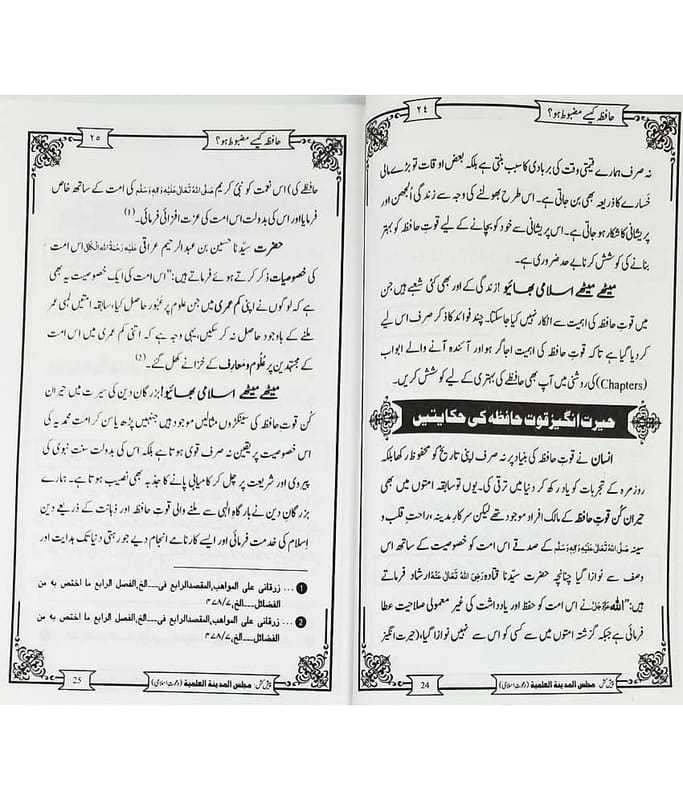 ۲٤
حافظہ کیسے مضبوط ہو؟
نہ صرف ہمارے قیمتی وقت کی بربادی کا سبب بنتی ہے بلکہ بعض اوقات تو بڑے مالی
خسارے کا ذریعہ بھی بن جاتی ہے۔ اس طرح بھولنے کی وجہ سے زندگی اُلجھن اور
پریشانی کا شکار ہو جاتی ہے۔ اس پریشانی سے خود کو بچانے کے لیے قوتِ حافظہ کو بہتر
بنانے کی کوشش کرنا بے حد ضروری ہے۔
میٹھے میٹھے اسلامی بھائیو! زندگی کے اور بھی کئی شعبے ہیں جن
میں قوتِ حافظہ کی اہمیت سے انکار نہیں کیا جاسکتا۔ چند فوائد کا ذکر صرف اس لیے
کر دیا گیا ہے تاکہ قوتِ حافظہ کی اہمیت اجاگر ہو اور آئندہ آنے والے ابواب
(Chapters) کی روشنی میں آپ بھی حافظے کی بہتری کے لیے کوشش کریں۔
حیرت انگیز قوت حافظہ کی حکایتیں
انسان نے قوتِ حافظہ کی بنیاد پر نہ صرف اپنی تاریخ کو محفوظ رکھا بلکہ
روزمرہ کے تجربات کو یاد رکھ کر دنیا میں ترقی کی۔ یوں تو سابقہ امتوں میں بھی
حیران کُن قوتِ حافظہ کے مالک افراد موجود تھے لیکن سرکارِ مدینہ، راحتِ قلب و
سینہ صَلَّی اللہُ تَعَالٰی عَلَیْہِ وَاٰلِہٖ وَسَلَّم کے صدقے اس امت کو خصوصیت کے ساتھ اس
وصف سے نوازا گیا چنانچہ حضرت سیّدنا قتادہ رَضِیَ اللہُ تَعَالٰی عَنْہُ ارشاد فرماتے
ہیں: ”اللہ عَزَّوَجَلَّ نے اس امت کو حفظ اور یادداشت کی غیر معمولی صلاحیت عطا
فرمائی ہے جبکہ گزشتہ امتوں میں سے کسی کو اس سے نہیں نوازا گیا، (حیرت انگیز
پیش کش: مجلس المدینۃ العلمیۃ (دعوتِ اسلامی)
24
۲٥
حافظہ کیسے مضبوط ہو؟
حافظے کی) اس نعمت کو نبیِّ کریم صَلَّی اللہُ تَعَالٰی عَلَیْہِ وَاٰلِہٖ وَسَلَّم کی امت کے ساتھ خاص
فرمایا اور اس کی بدولت اس امت کی عزت افزائی فرمائی۔ (۱)
حضرت سیّدنا حسین بن عبد الرحیم عراقی عَلَیْہِ رَحْمَۃُ اللہِ الْکَافِی اس امت
کی خصوصیات ذکر کرتے ہوئے فرماتے ہیں: ”اس امت کی ایک خصوصیت یہ بھی
ہے کہ لوگوں نے اپنی کم عمری میں جن علوم پر عُبور حاصل کیا، سابقہ امتیں لمبی عمر
ملنے کے باوجود حاصل نہ کر سکیں، یہی وجہ ہے کہ اتنی کم عمری میں اس امت
کے مجتہدین پر عُلوم و معارف کے خزانے کھل گئے۔ (۲)
میٹھے میٹھے اسلامی بھائیو! بزرگانِ دین کی سیرت میں حیران
کُن قوتِ حافظہ کی سینکڑوں مثالیں موجود ہیں جنہیں پڑھ یا سن کر امتِ محمدیہ کی
اس خصوصیت پر یقین نہ صرف قوی ہوتا ہے بلکہ اس کی بدولت سنتِ نبوی کی
پیروی اور شریعت پر چل کر کامیابی پانے کا جذبہ بھی نصیب ہوتا ہے۔ ہمارے
بزرگانِ دین نے بارگاہِ الٰہی سے ملنے والی قوتِ حافظہ اور ذہانت کے ذریعے دینِ
اسلام کی خدمت فرمائی اور ایسے کارنامے انجام دیے جو رہتی دنیا تک ہدایت اور
1 ... زرقانی علی المواھب، المقصد الرابع فی---الخ، الفصل الرابع ما اختص بہ من
الفضائل---الخ، ۷/۴۷۸
2 ... زرقانی علی المواھب، المقصد الرابع فی---الخ، الفصل الرابع ما اختص بہ من
الفضائل---الخ، ۷/۴۷۸
پیش کش: مجلس المدینۃ العلمیۃ (دعوتِ اسلامی)
25